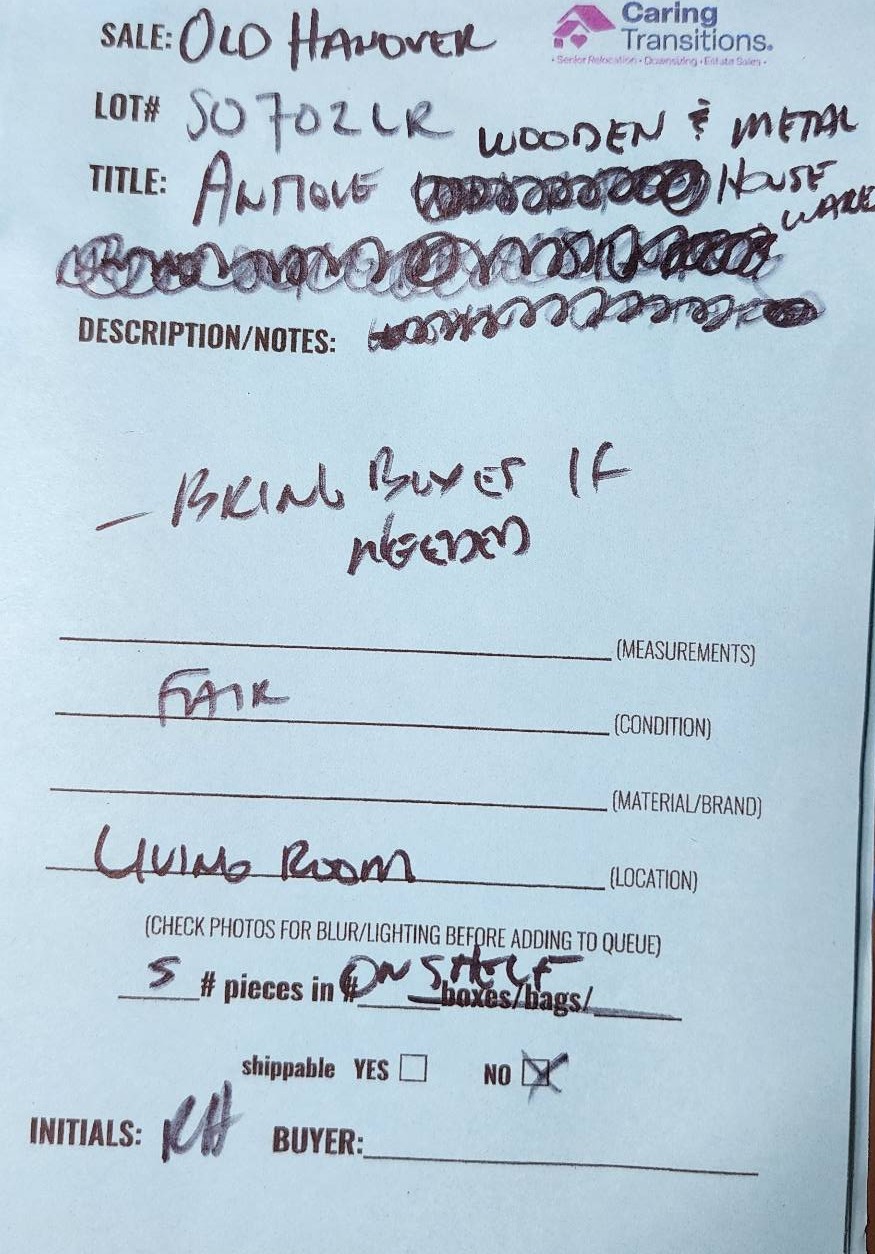 Caring
SALE: OLD HANOVER Transitions.
• Senior Relocation • Downsizing • Estate Sales •
LOT# SO702LR WOODEN & METAL
TITLE: ANTIQUE HOUSE
WARE
DESCRIPTION/NOTES:
– BRING BOXES IF
NEEDED
(MEASUREMENTS)
FAIR (CONDITION)
(MATERIAL/BRAND)
LIVING ROOM (LOCATION)
(CHECK PHOTOS FOR BLUR/LIGHTING BEFORE ADDING TO QUEUE)
5 # pieces in # ON SHELF boxes/bags/
shippable YES NO
INITIALS: RH BUYER: